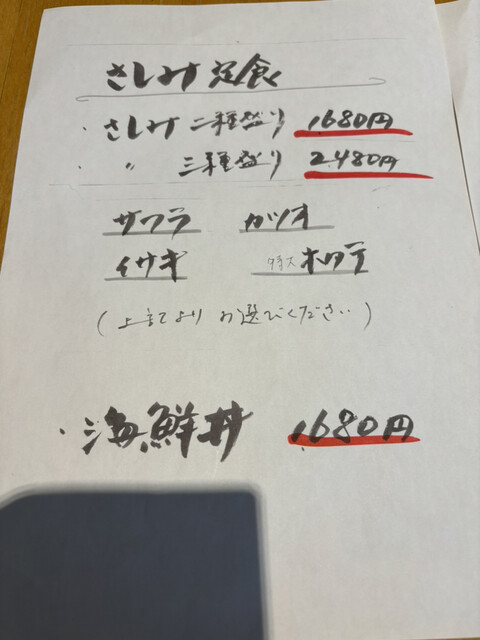 さしみ定食
・さしみ二種盛り 1680円
・〃 三種盛り 2480円
サワラ カツオ
イサキ 特大ホタテ
(上記よりお選びください)
・海鮮丼 1680円